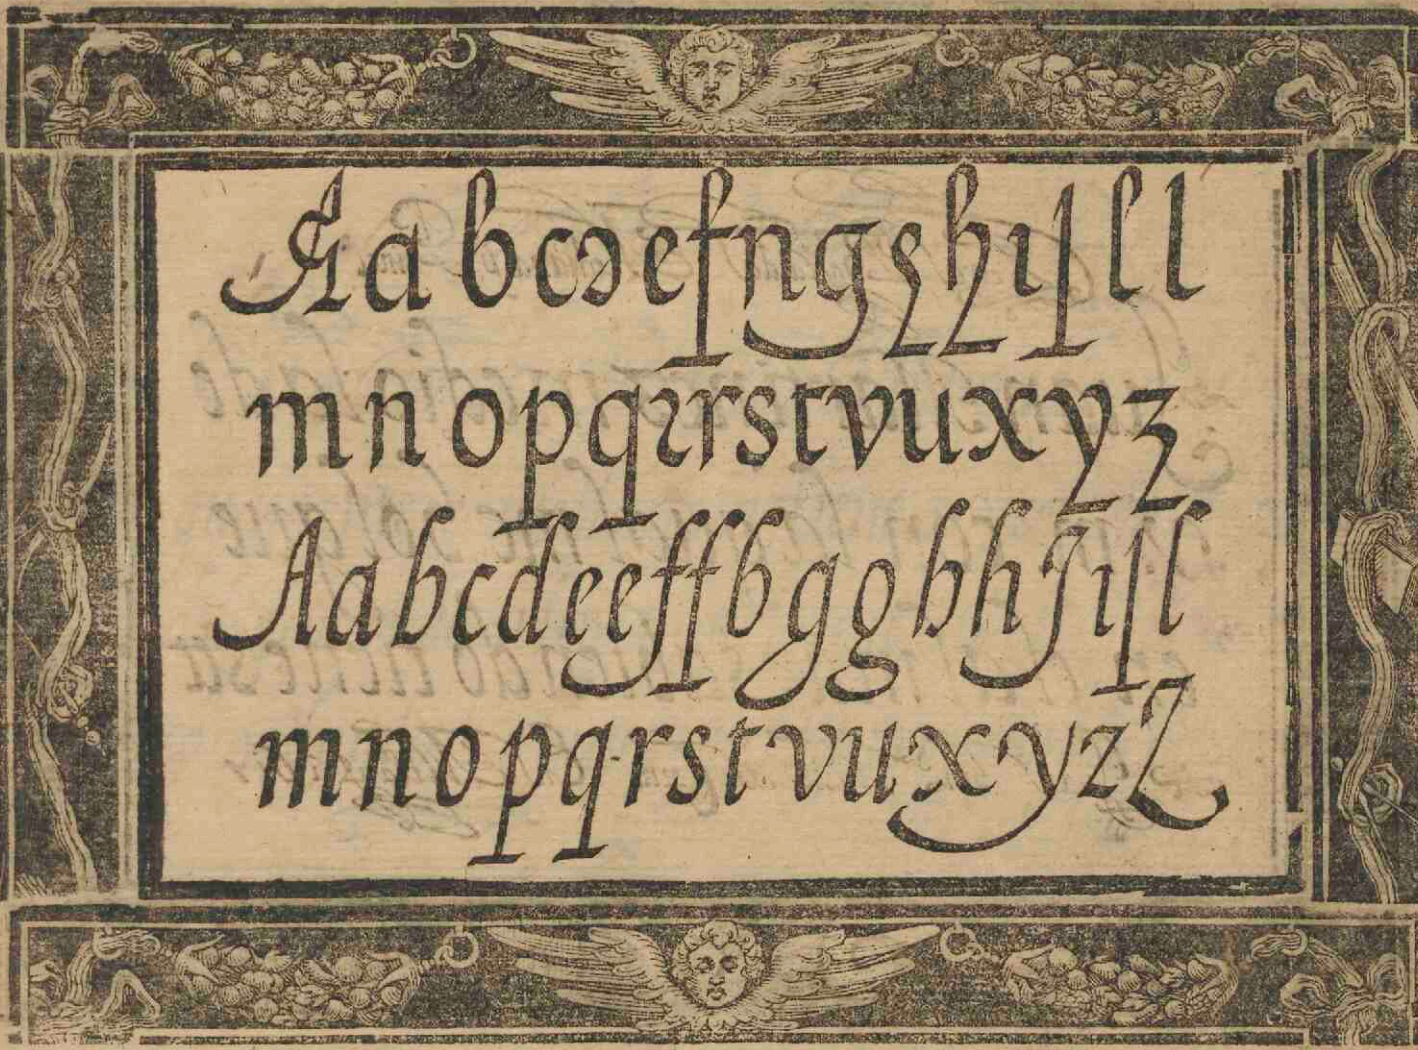 A a b c d e f n g g h i ſ l l
m n o p q ꝛ r s t v u x y z
A a b c d e e f f b g g b h J i ſ l
m n o p q r s t v u x x y z Z